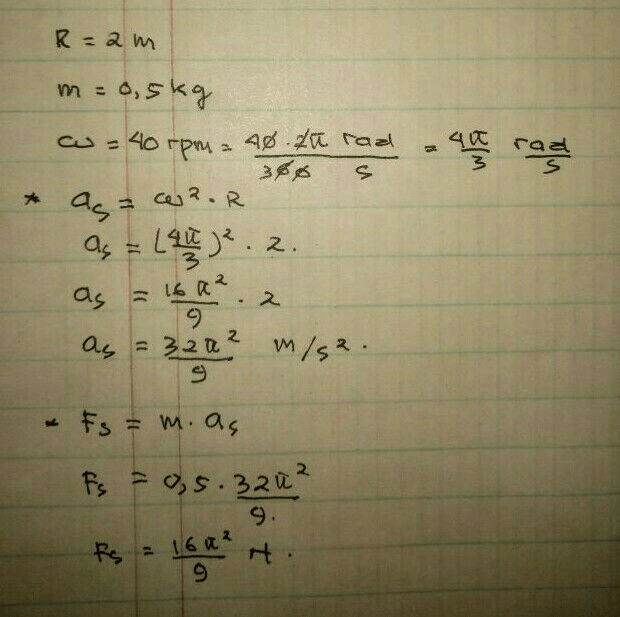 R = 2 m
m = 0,5 kg
ω = 40 rpm = 40 · 2π rad / 60 s = 4π/3 rad/s
* as = ω² · R
as = (4π/3)² · 2.
as = 16π²/9 · 2
as = 32π²/9 m/s².
* Fs = m · as
Fs = 0,5 · 32π²/9.
Fs = 16π²/9 N.